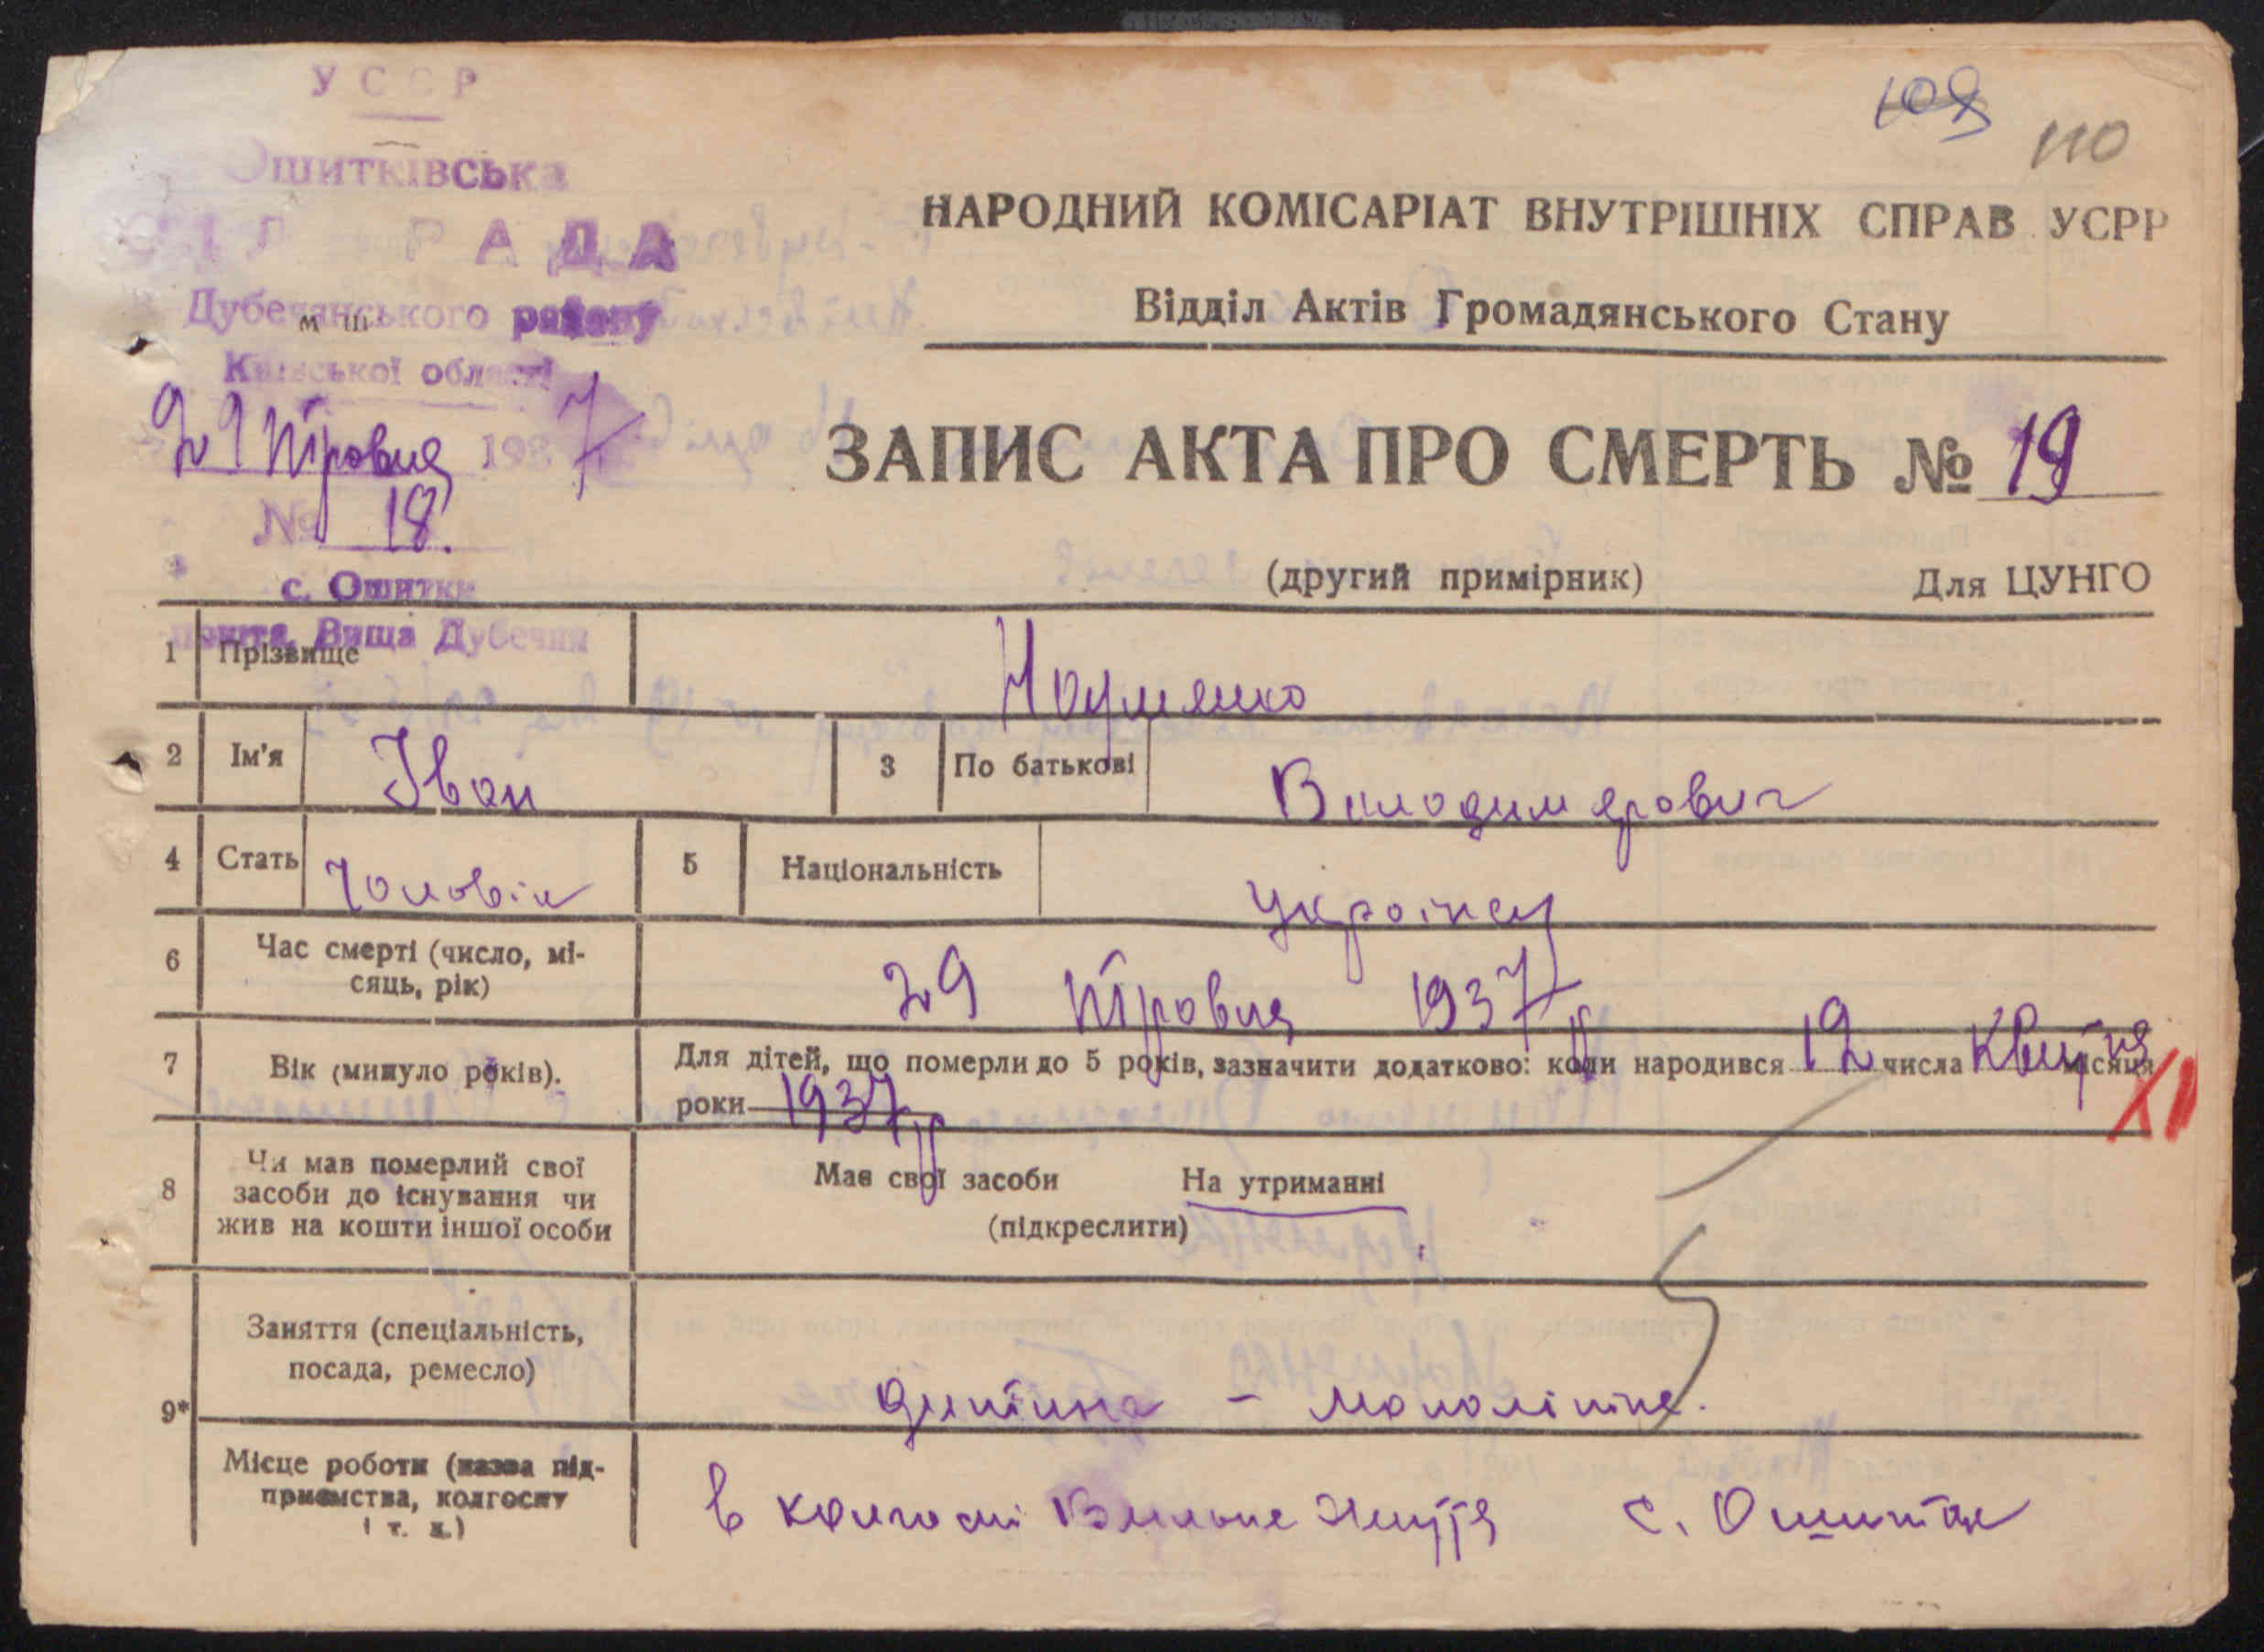 УСРР
109
110
Ошитківська
СІЛ РАДА
Дубечанського району
Київської області
29 Травня 1937
№ 18.
с. Ошитки
пошта Вища Дубечня
НАРОДНИЙ КОМІСАРІАТ ВНУТРІШНІХ СПРАВ УСРР
Відділ Актів Громадянського Стану
ЗАПИС АКТА ПРО СМЕРТЬ № 19
(другий примірник) Для ЦУНГО
1 Прізвище Науменко
2 Ім'я Іван 3 По батькові Володимирович
4 Стать Чоловік 5 Національність Українец
6 Час смерті (число, мі-
сяць, рік) 29 Травня 1937 р
7 Вік (минуло років). Для дітей, що померли до 5 років, зазначити додатково: коли народився 12 числа Квітня місяця
роки 1937 р
XI
8 Чи мав померлий свої
засоби до існування чи
жив на кошти іншої особи
Має свої засоби На утриманні
(підкреслити)
9* Заняття (спеціальність,
посада, ремесло) дитина - малолітня.
Місце роботи (назва під-
приємства, колгоспу
і т. д.) в колгоспі Вильне Життя с. Ошитки